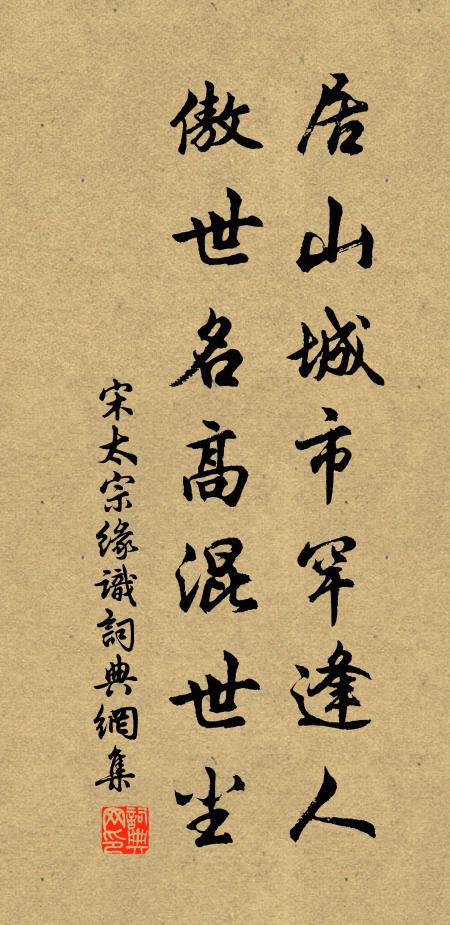 居山城市罕逢人
傲世名高混世尘
宋太宗緣識詞典網集
詞典網印